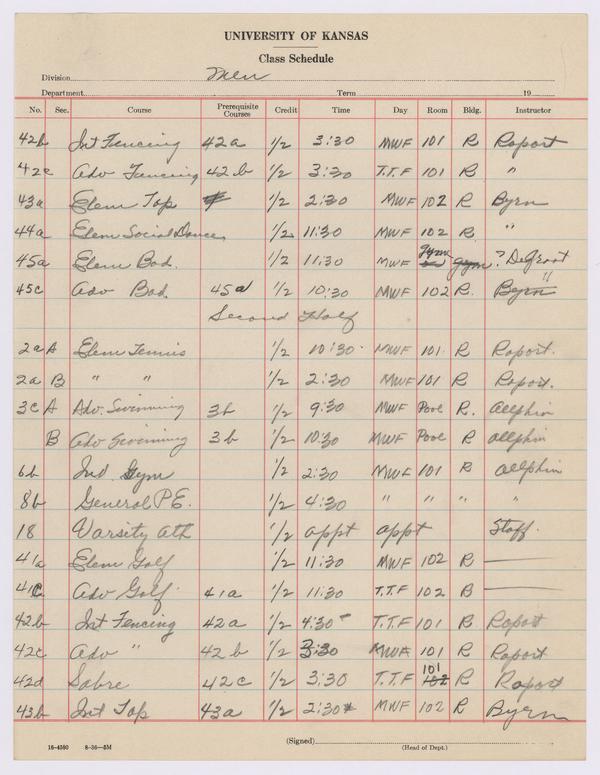 UNIVERSITY OF KANSAS
Class Schedule
Division Men
Department Term 19
No. Sec. Course Prerequisite Courses Credit Time Day Room Bldg. Instructor
42b Int Fencing 42a 1/2 3:30 MWF 101 R Roport
42c Adv Fencing 42b 1/2 3:30 T.T.F 101 R "
43a Elem Tap 1/2 2:30 MWF 102 R Byrn
44a Elem Social Dance 1/2 11:30 MWF 102 R. "
45a Elem Bad. 1/2 11:30 MWF gym gym ? DeGroot
45c Adv Bad. 45a 1/2 10:30 MWF 102 R. Byrn "
Second Half
2a A Elem Tennis 1/2 10:30 MWF 101 R Roport.
2a B " " 1/2 2:30 MWF 101 R Roport.
3c A Adv. Swimming 3b 1/2 9:30 MWF Pool R. Allphin
B Adv Swimming 3b 1/2 10:30 MWF Pool R Allphin
6b Ind Gym 1/2 2:30 MWF 101 R Allphin
8b General P.E. 1/2 4:30 " " " "
18 Varsity Ath 1/2 appt appt Staff.
41a Elem Golf 1/2 11:30 MWF 102 R
41c Adv Golf 41a 1/2 11:30 T.T.F 102 R
42b Int Fencing 42a 1/2 4:30 T.T.F 101 R Roport
42c Adv " 42b 1/2 3:30 MWF 101 R Roport
42d Sabre 42c 1/2 3:30 T.T.F 101 102 R Roport
43b Int Tap 43a 1/2 2:30 MWF 102 R Byrn
(Signed)
16-4580 8-36-5M (Head of Dept.)